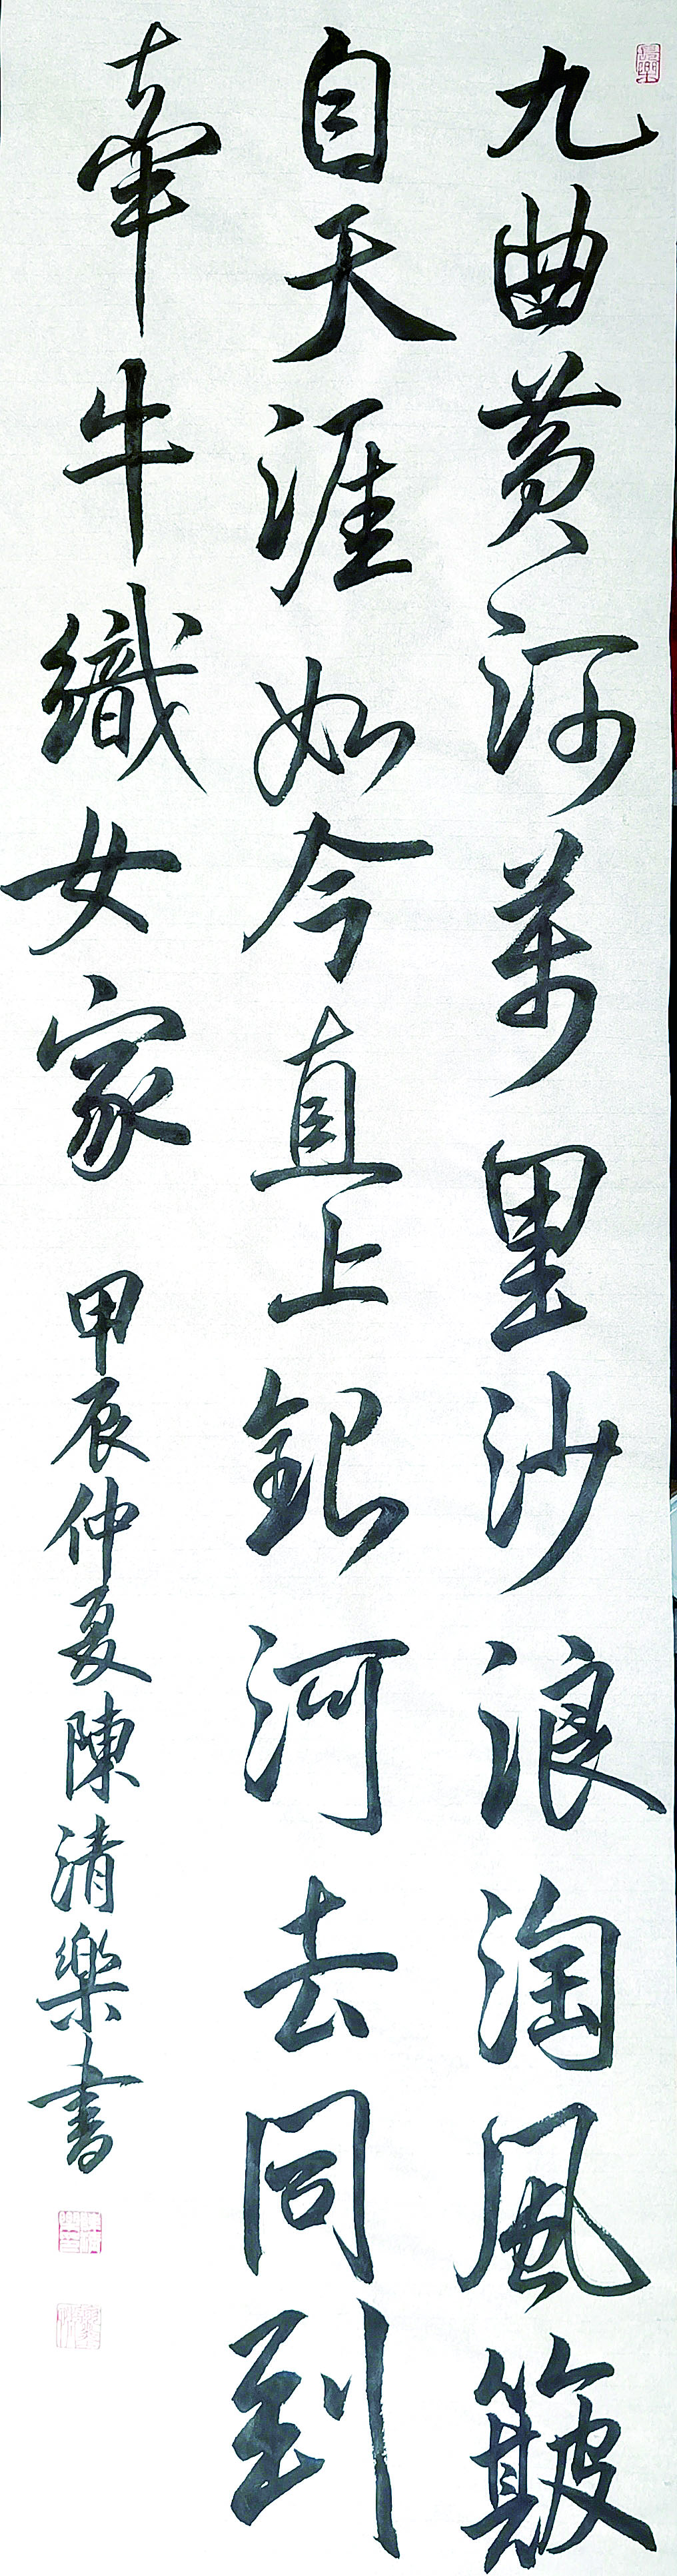 九曲黄河萬里沙浪淘風簸
自天涯如今直上銀河去同到
牽牛織女家
甲辰仲夏陳清樂書